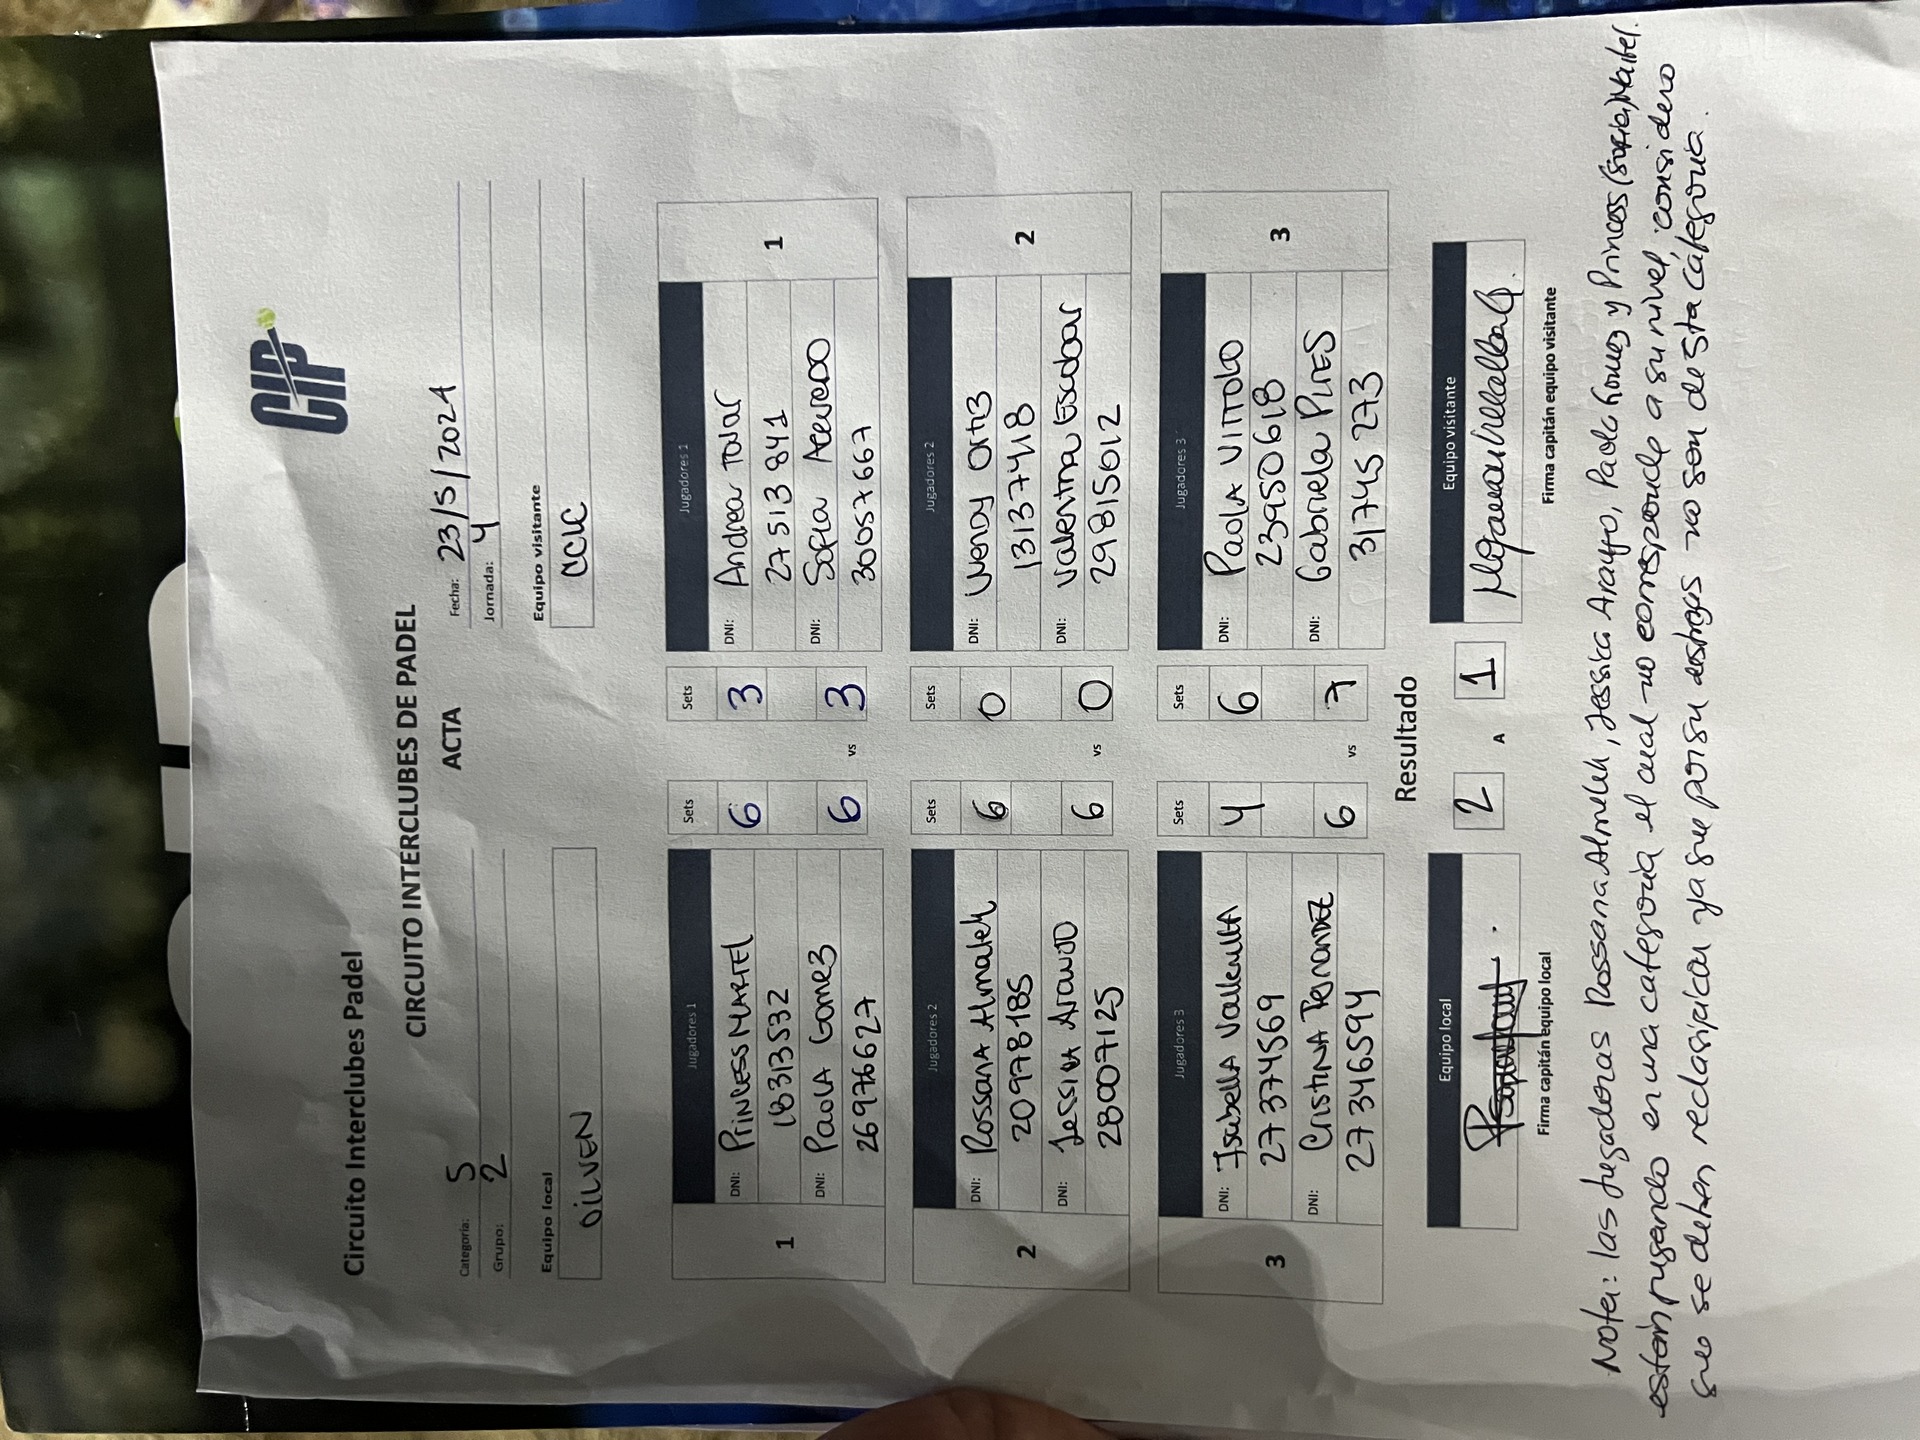 Circuito Interclubes Padel
CIP
CIRCUITO INTERCLUBES DE PADEL
ACTA
Categoría: 5
Grupo: 2
Fecha: 23/5/2024
Jornada: 4
Equipo local
OILVEN
Equipo visitante
CCLC
Jugadores 1 Sets Sets Jugadores 1
1 DNI: Princess MARTEL 6 3 DNI: Andrea Tovar 1
18313532 27513841
DNI: PAOLA Gomez 6 vs 3 DNI: Sofia Acevedo
26976627 30057667
Jugadores 2 Sets Sets Jugadores 2
2 DNI: Rossana Almalek 6 0 DNI: Wendy Ortiz 2
20978185 13137418
DNI: Jessica Araujo 6 vs 0 DNI: Valentina Escobar
28007125 29815612
Jugadores 3 Sets Sets Jugadores 3
3 DNI: Isabella Vallenilla 4 6 DNI: PAOLA VITTOLO 3
27374569 23950618
DNI: CRISTINA Fernandez 6 vs 7 DNI: Gabriela PIRES
27346594 31745273
Resultado
Equipo local 2 A 1 Equipo visitante
Firma capitán equipo local
Firma capitán equipo visitante
Nota: las Jugadoras Rossana Almelek, Jessica Araujo, Paola Gomez y Princess (sucia) Martel.
están jugando en una categoria el cual no corresponde a su nivel, considero
que se deben reclasificar ya que por su destrezas no son de esta categoria.